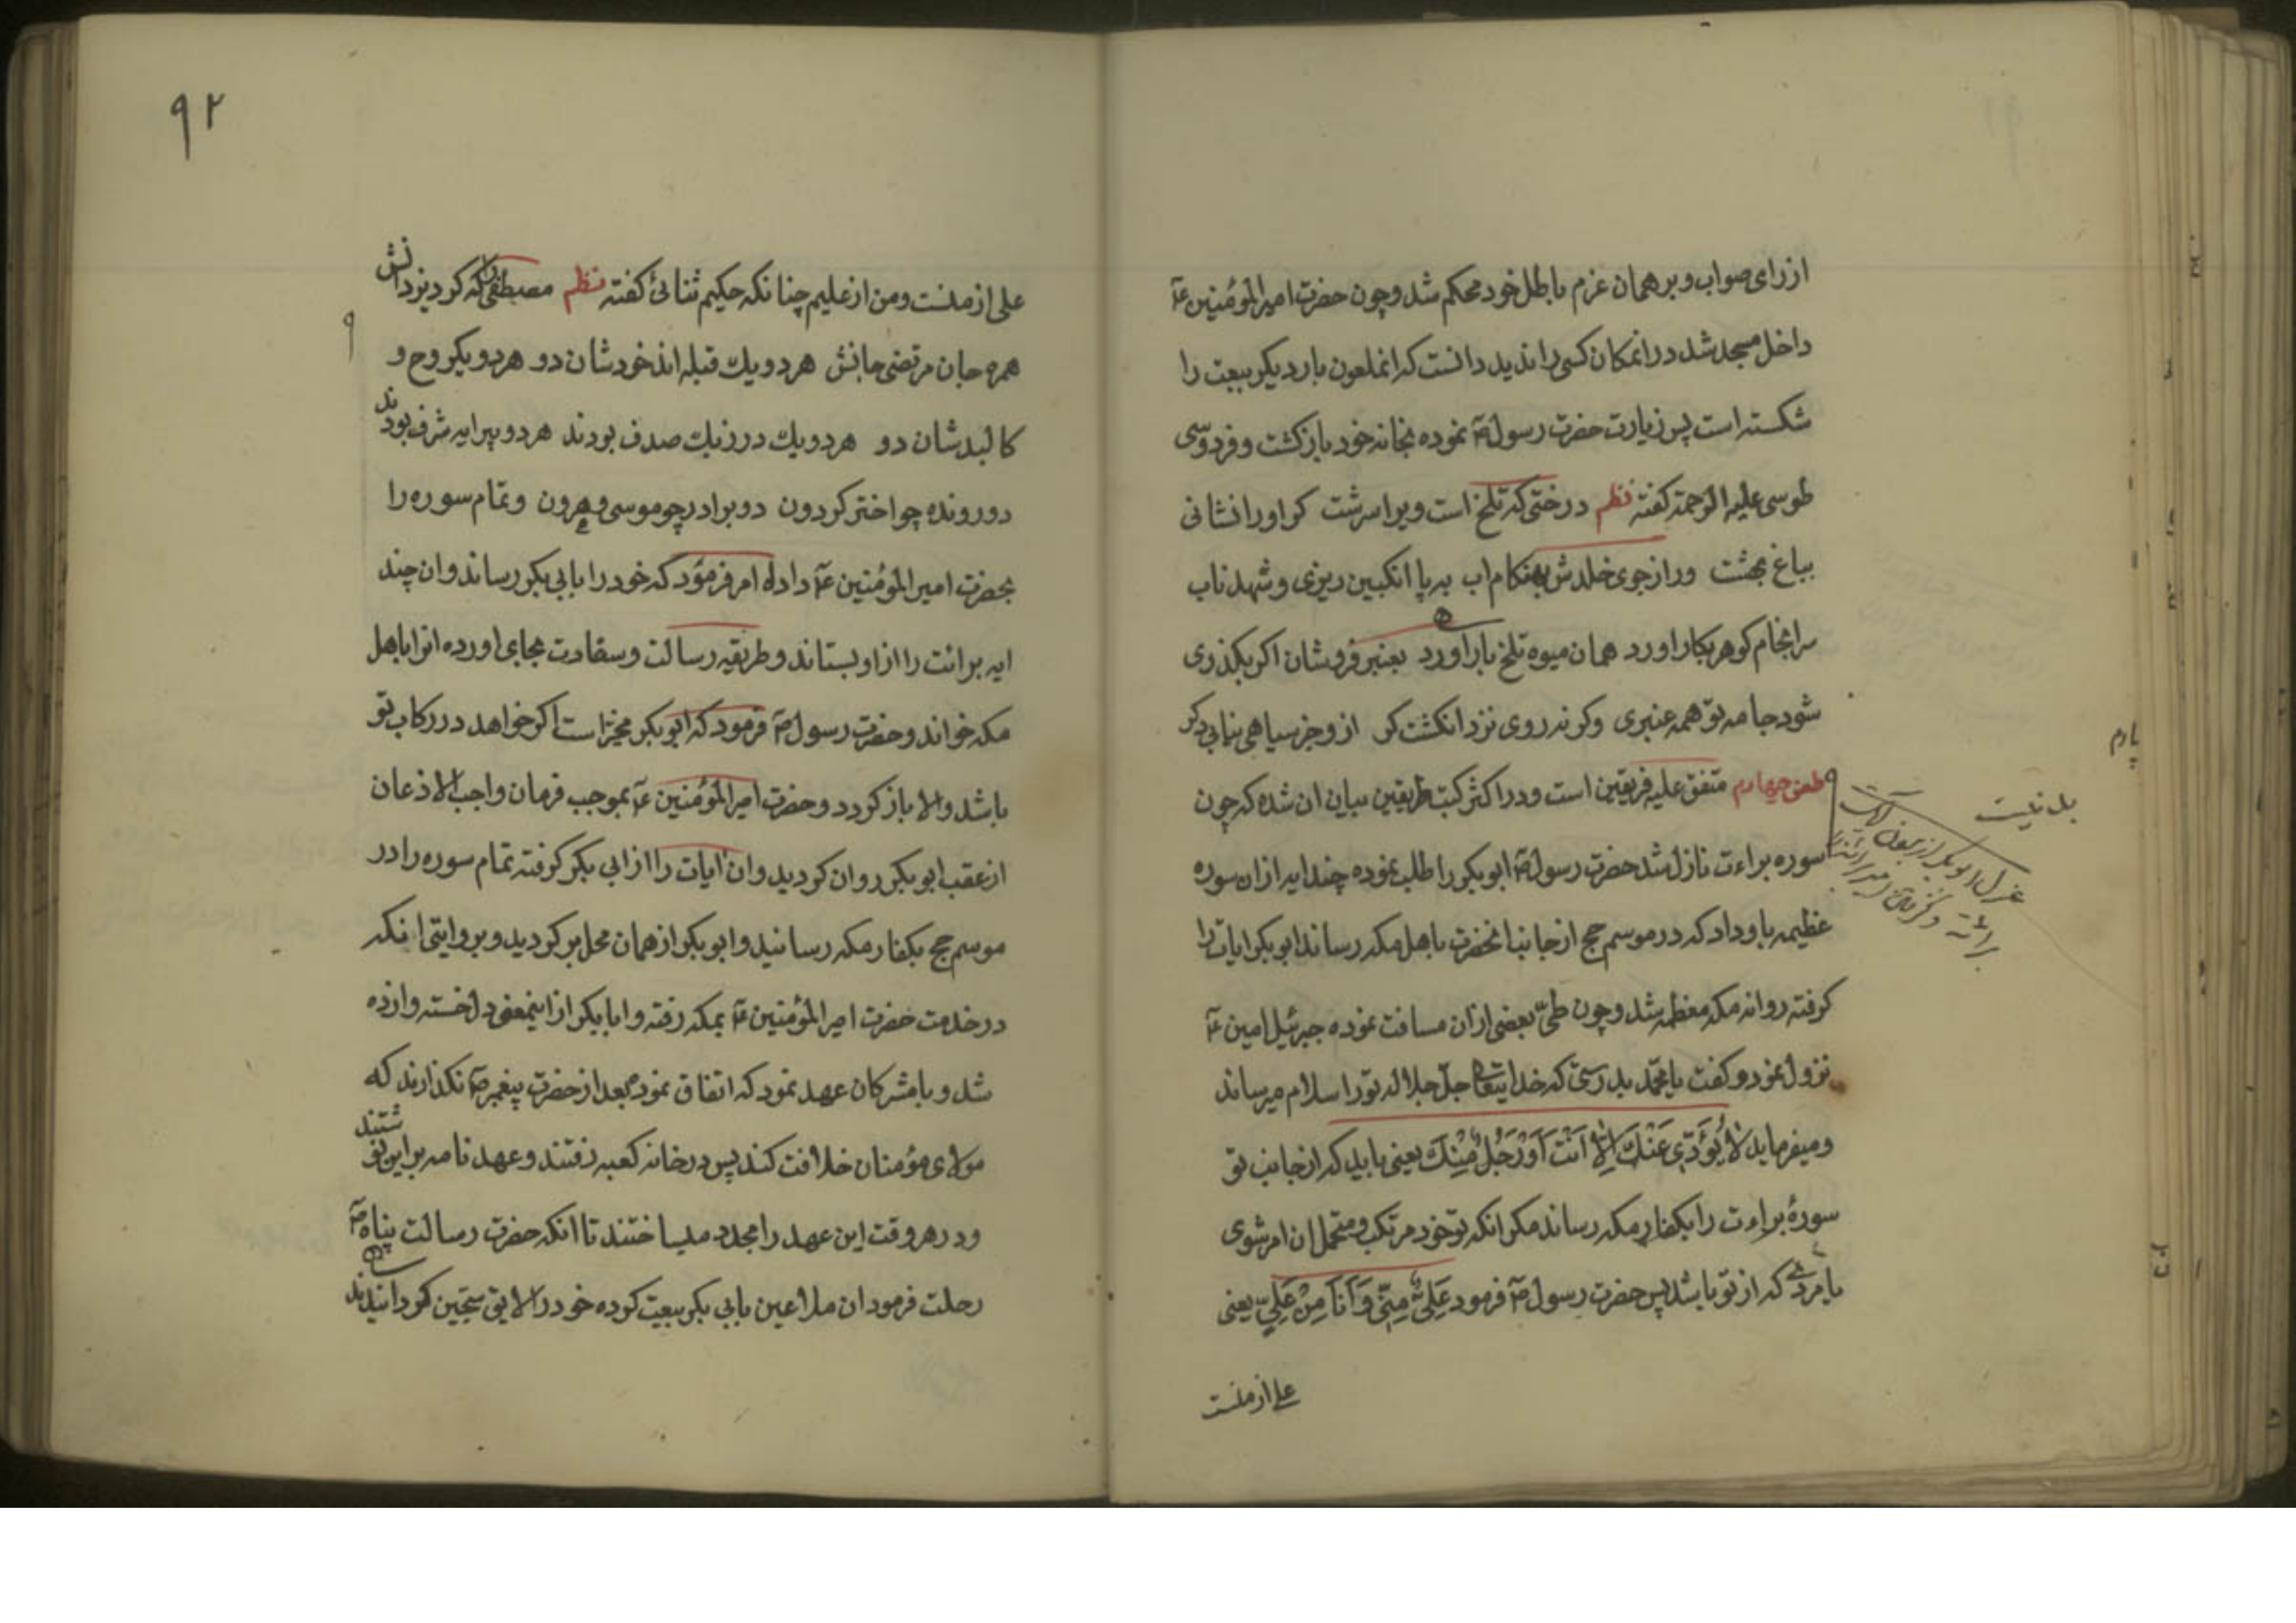 از رای صواب و بر همان عزم باطل خود محکم شد و چون حضرت امیرالمؤمنین عۤ
داخل مسجد شد در انمکان کسی را ندید دانست که انملعون بار دیکر بیعت را
شکسته است پس زیارت حضرت رسول صۤ نموده بخانه خود بازکشت و فردوسی
طوسی علیه الرحمة کفته نظم درختی که تلخ است ویرا سرشت کر اورا نشانی
بباغ بهشت ور از جوی خلدش بهنکام اب به پا انکبین ریزی و شهد ناب
سرانجام کوهر بکار اورد همان میوه تلخ بار اورد بعنبر فروشان اکر بکذری
شود جامه تو همه عنبری وکر نه روی نزد انکشت کر از و جز سیاهی نیابی دکر
طعن چهارم متفق علیه فریقین است و در اکثر کتب طریقین بیان ان شده که چون
سوره براءت نازل شد حضرت رسول صۤ ابوبکر را طلب نموده چند ایه از ان سوره
عظیمه باو داد که در موسم حج از جانب انحضرت باهل مکه رساند ابوبکر ایات را
کرفته روانه مکه معظمه شد و چون طیّ بعضی از ان مسافت نموده جبرئیل امین عۤ
نزول نمود و کفت یا محمّد بدرستی که خدایتعالی جلّ جلاله تو را سلام میرساند
و میفرماید لٰا یُؤَدّی عَنْكَ اِلّٰا اَنْتَ اَوْ رَجُلٌ مِنْكَ یعنی باید که از جانب تو
سورۀ براءت را بکفار مکه رساند مکر انکه تو خود مرتکب و متحمل ان امر شوی
یا مردی که از تو باشد پس حضرت رسول صۤ فرمود عَلِیٌّ مِنّی وَ اَنَا مِنْ عَلِیٍّ یعنی
علی از منست
بد نیست
عزل ابوبکر از
پارم
۹۲
علی از منست و من از علیم چنانکه حکیم ثنائی کفته نظم مصطفی را که کرد یزدانش
همره جان مرتضی جانش هر دو یك قبله اند خودشان دو هر دو یکروح و
کالبدشان دو هر دو یك در ز یك صدف بودند هر دو پیرایه شرف بودند
دو رونده چو اختر کردون دو برادر چو موسی و هرون و تمام سوره را
بحضرت امیرالمؤمنین عۤ داده امر فرمود که خود را بابی بکر رساند و ان چند
ایه برائت را از او بستاند و طریقه رسالت و سفادت بجای اورده انرا باهل
مکه خواند و حضرت رسول صۤ فرمود که ابوبکر مخیر است اکر خواهد در رکاب تو
باشد والا باز کردد و حضرت امیرالمؤمنین عۤ بموجب فرمان واجب الاذعان
از عقب ابوبکر روان کردید و ان ایات را از ابی بکر کرفته تمام سوره را در
موسم حج بکفار مکه رسانید و ابوبکر از همان محل بر کردید و بروایتی انکه
در خدمت حضرت امیرالمؤمنین عۤ بمکه رفته و ابابکر از اینمعنی دلخسته و ازده
شد و با مشرکان عهد نمود که اتفاق نمود بعد از حضرت پیغمبر صۤ نکذارند که
مولای مؤمنان خلافت کند پس در خانه کعبه رفتند و عهد نامه براین نوشتند
و در هر وقت این عهد را مجدد میساختند تا انکه حضرت رسالت پناه صۤ
رحلت فرمود ان ملاعین بابی بکر بیعت کرده خود را لایق سجّین کردانیدند